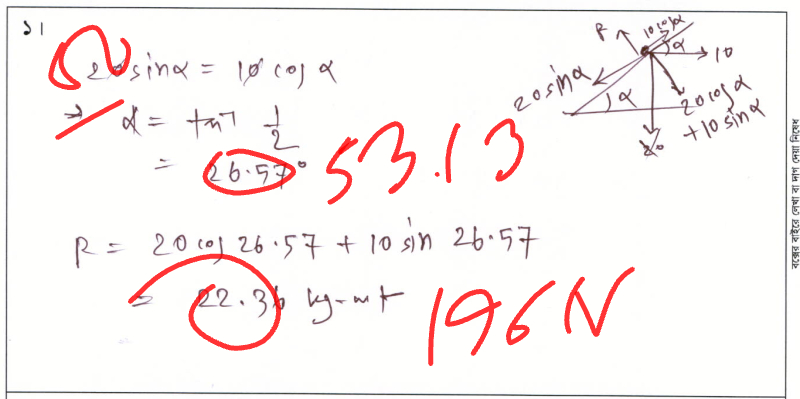 ১।
20 sinα = 10 cos α
⇒ α = tan⁻¹ 1/2
= 26.57°
53.13
R = 20 cos 26.57 + 10 sin 26.57
= 22.36 kg-wt
196 N
R
10 cosα
α
10
20 sinα
α
20 cosα
+ 10 sinα
20
বক্সের বাইরে লেখা বা দাগ দেয়া নিষেধ